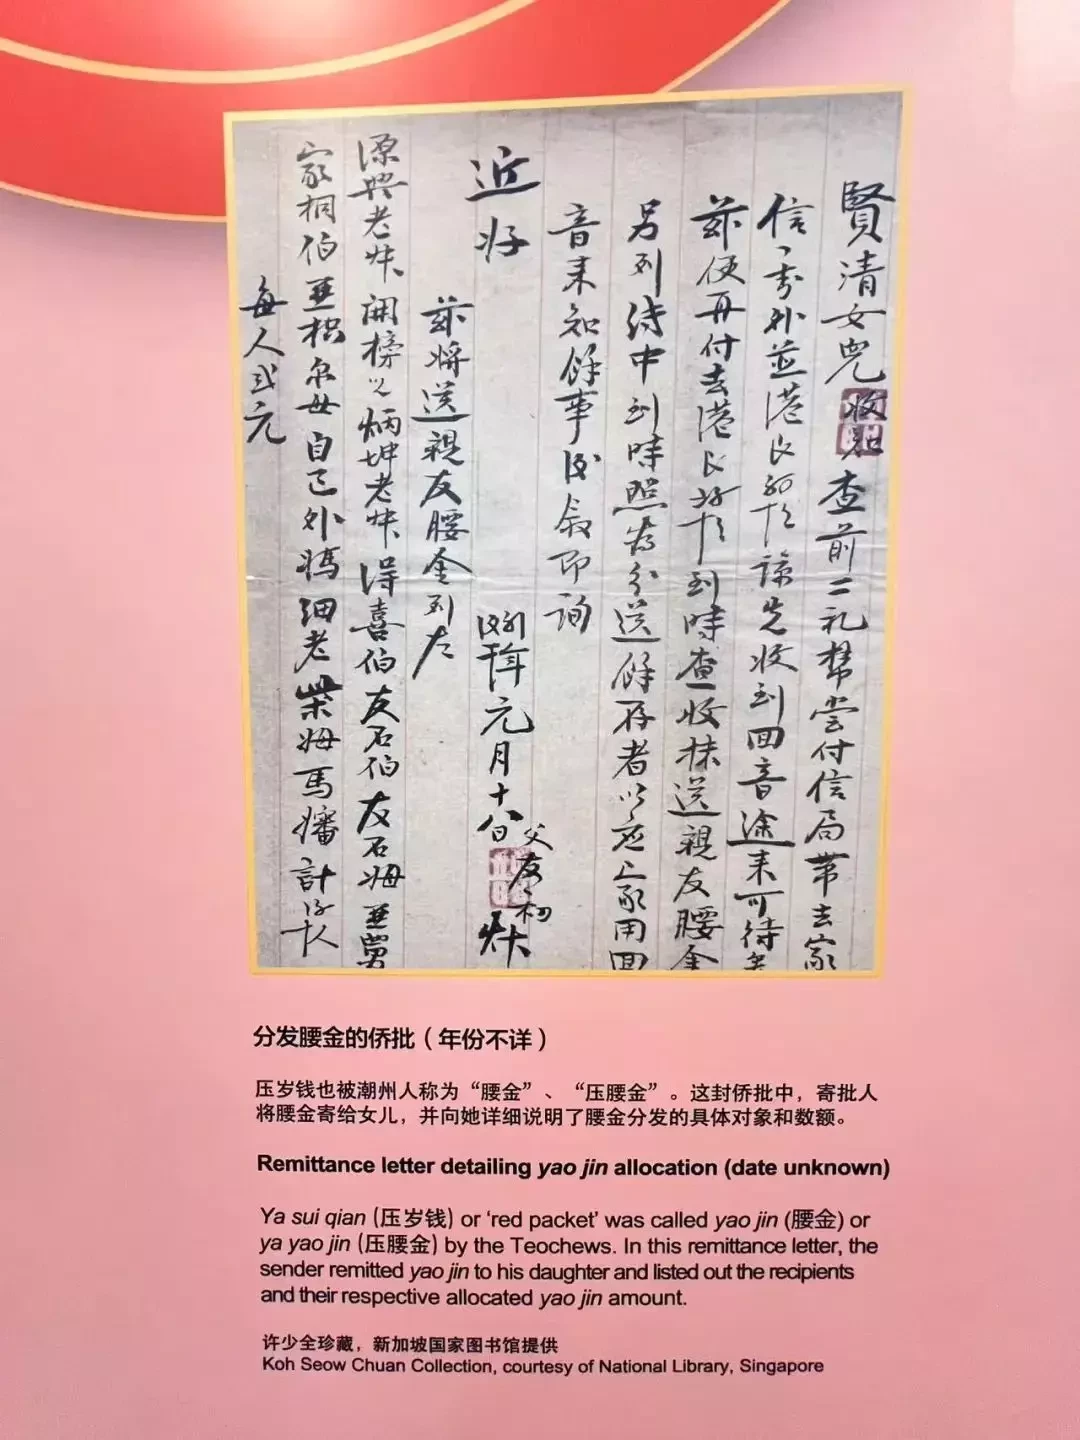 賢清女兒收知查前二礼幇尝付信局帯去家
信外並港艮諒先收到回音途来可待
茲便再付去港艮到時查收抹送親友腰金
另列待中到時照為分送餘存者以应上家用回
音来知餘事后叙即詢
近好
元月十八日
父友初
茲将送親友腰金列左
源興老妗開榜炳坤老妗得喜伯友石伯友石姆亜舅
家桐伯亜松尔母自己外媽细老柴姆馬嬸計人
每人弍元
分发腰金的侨批（年份不详）
压岁钱也被潮州人称为“腰金”、“压腰金”。这封侨批中，寄批人
将腰金寄给女儿，并向她详细说明了腰金分发的具体对象和数额。
Remittance letter detailing yao jin allocation (date unknown)
Ya sui qian (压岁钱) or ‘red packet’ was called yao jin (腰金) or
ya yao jin (压腰金) by the Teochews. In this remittance letter, the
sender remitted yao jin to his daughter and listed out the recipients
and their respective allocated yao jin amount.
许少全珍藏，新加坡国家图书馆提供
Koh Seow Chuan Collection, courtesy of National Library, Singapore